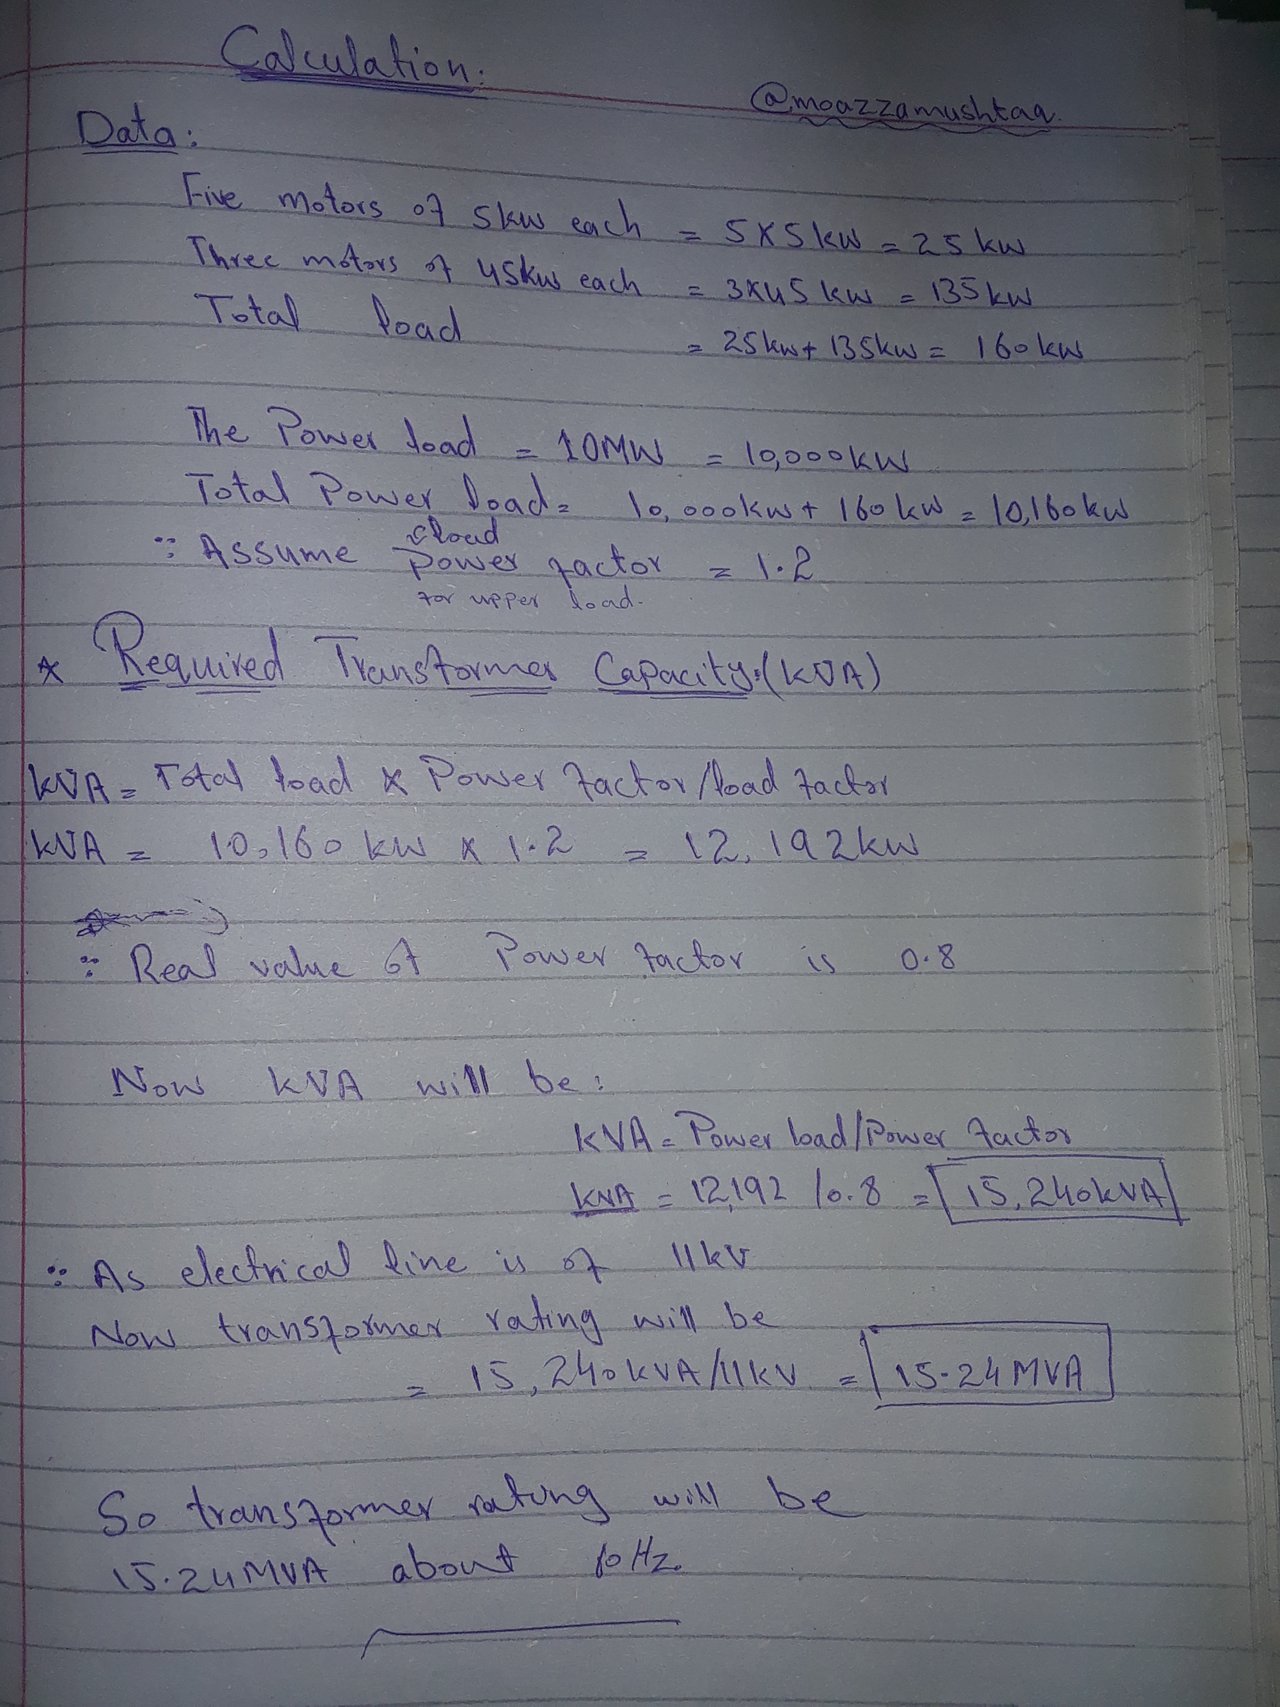 Calculation:
@moazzamushtaq.
Data:
Five motors of 5kw each = 5X5 kW = 25 kW
Three motors of 45kw each = 3X45 kW = 135 kW
Total load = 25kw+ 135kw = 160 kW
The Power load = 10MW = 10,000KW
Total Power load = 10,000kw+ 160 kW = 10,160kW
load
∵ Assume power factor = 1.2
for upper load.
* Required Transformer Capacity:(KVA)
KVA = Total load X Power factor/load factor
KVA = 10,160 KW X 1.2 = 12,192kW
∵ Real value of Power factor is 0.8
Now KVA will be:
KVA = Power load/Power factor
KVA = 12,192 /0.8 = 15,240kVA
∵ As electrical line is of 11kV
Now transformer rating will be
= 15,240KVA/11KV = 15.24 MVA
So transformer rating will be
15.24MVA about Hz.